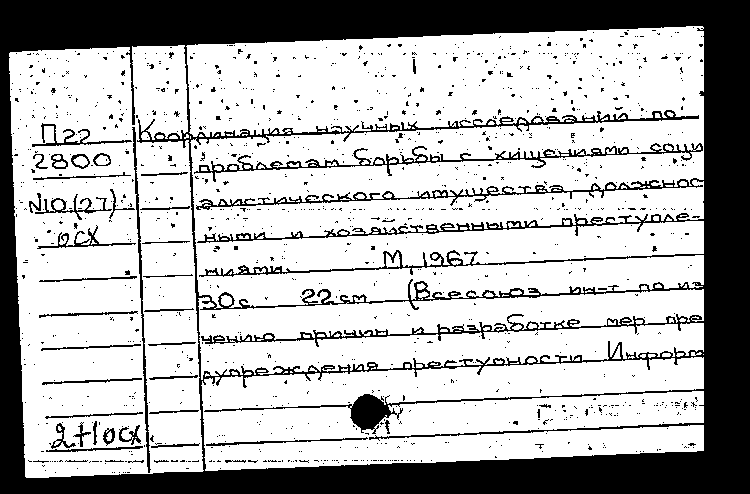 П22 Координация научных исследований по
2800 проблемам борьбы с хищениями соци
N10(27) алистического имущества, должнос
осх ными и хозяйственными преступле-
ниями. М, 1967.
30с 22см (Всесоюз. ин-т по из
чению причин и разработке мер пре
дупреждения преступности Информ
2+1осх